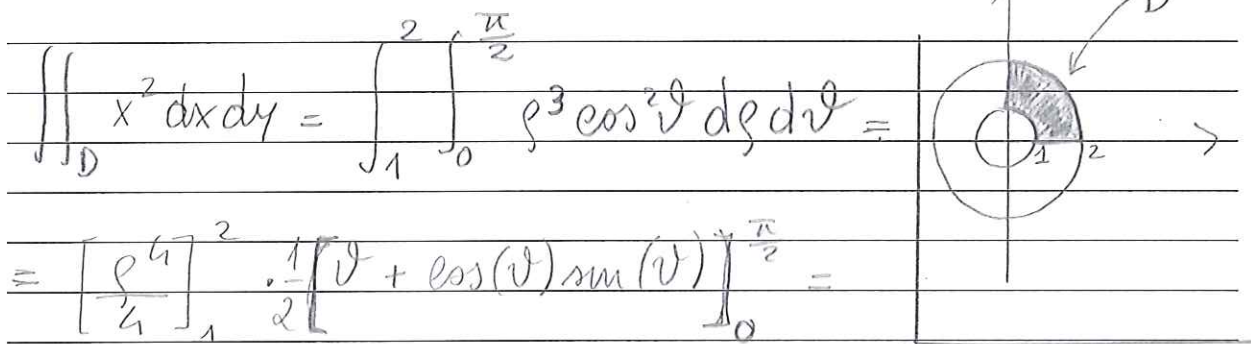 ∬_D x² dx dy = ∫_1^2 ∫_0^{π/2} ρ³ cos²ϑ dρ dϑ =
D
1 2
= [ρ⁴/4]_1^2 · 1/2 [ϑ + cos(ϑ) sin(ϑ)]_0^{π/2} =